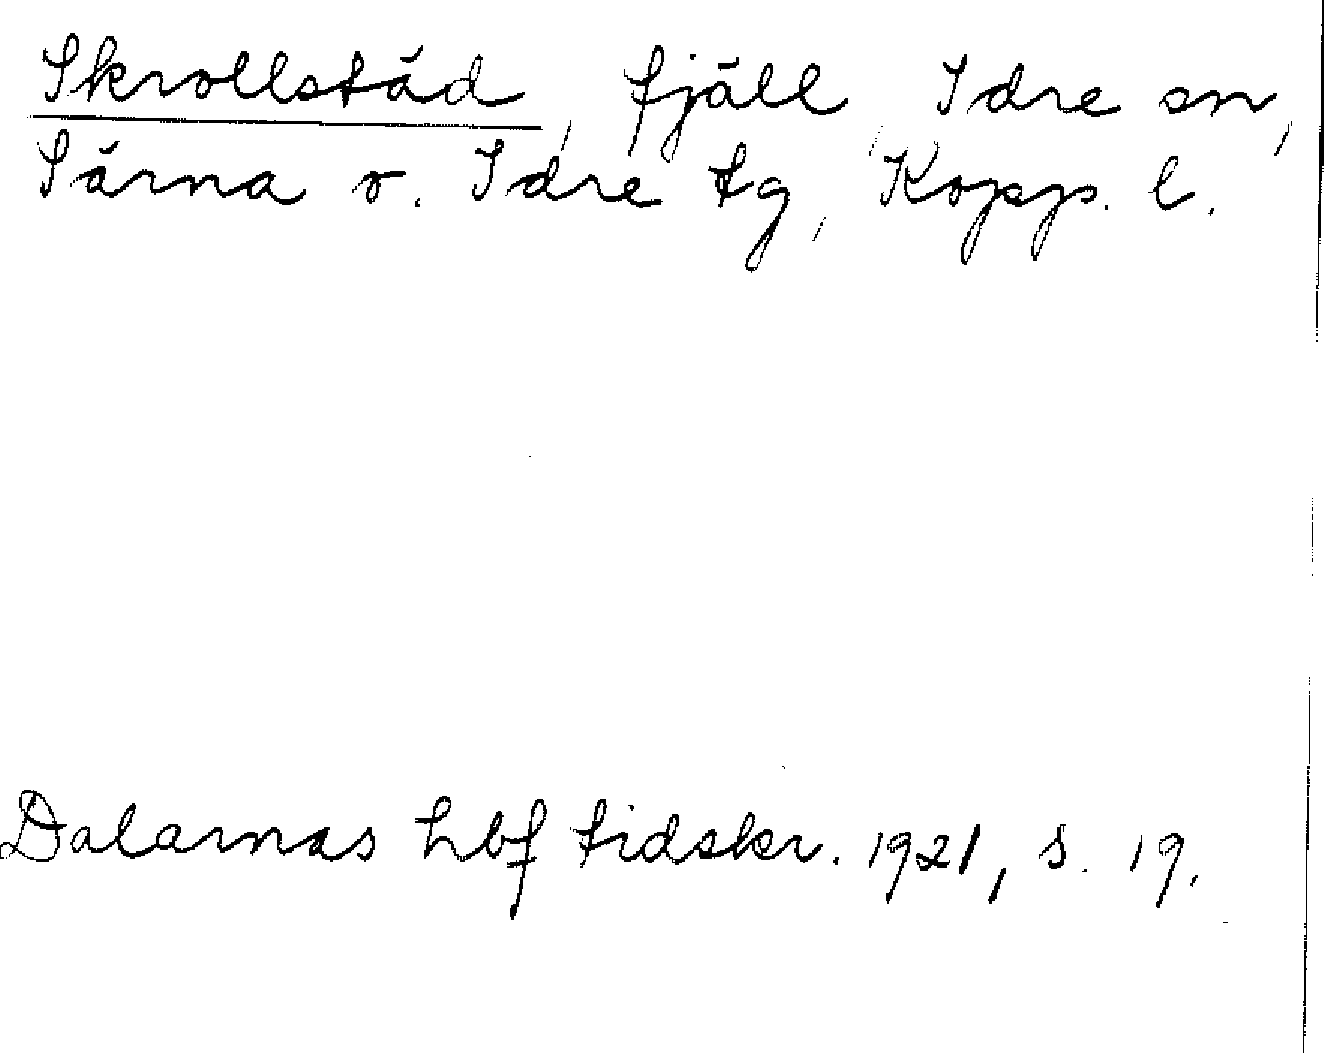 Skrollstäd, fjäll, Idre sn,
Särna o. Idre tg, Kopp. l.
Dalarnas hbf tidskr. 1921, s. 19.